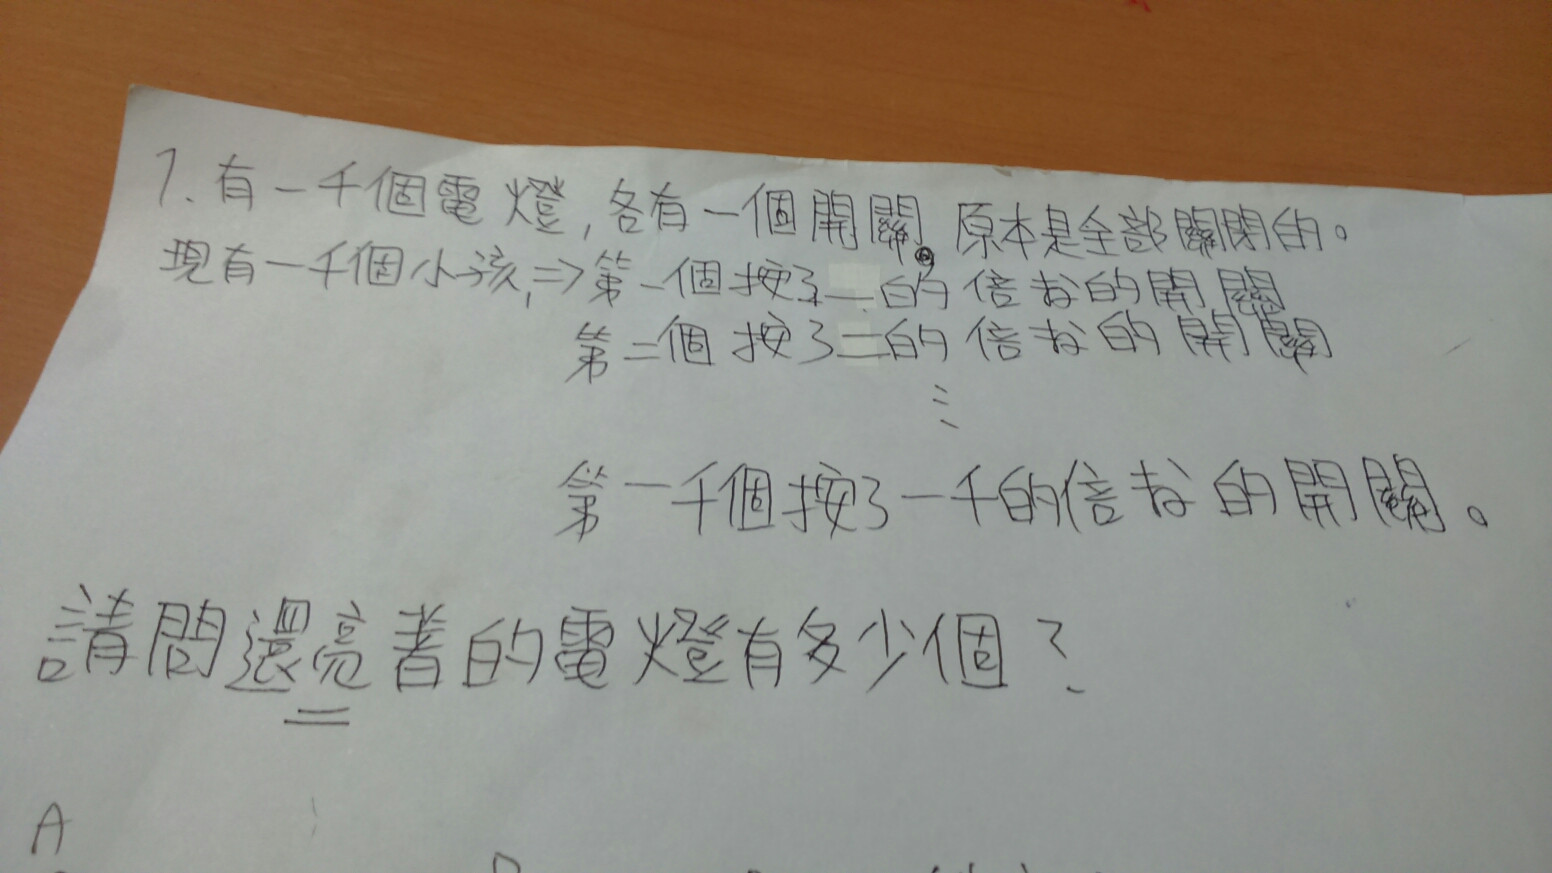 1. 有一千個電燈,各有一個開關。原本是全部關閉的。
現有一千個小孩,⇒第一個按了一的倍數的開關
第二個按了二的倍數的開關
⋮
第一千個按了一千的倍數的開關。
請問還亮著的電燈有多少個?
A